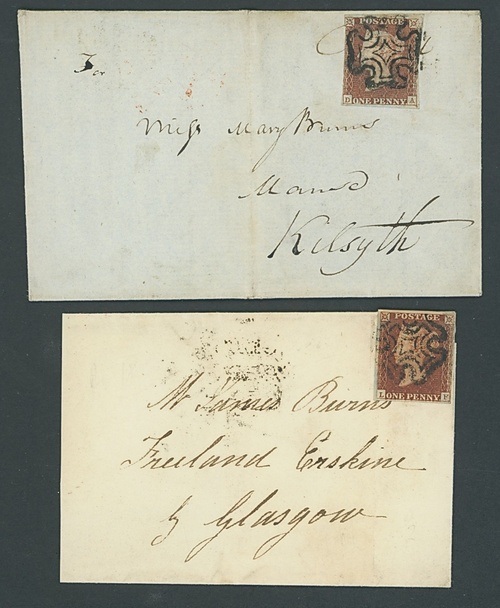 POSTAGE
D A
ONE PENNY
For
Miss Mary Burns
Manse
Kilsyth
POSTAGE
L E
ONE PENNY
Mr James Burns
Freeland Erskine
by Glasgow